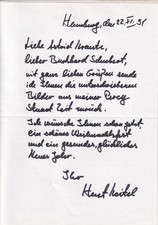 Hamburg, den 22.XI.91
Liebe Astrid
lieber Burkhard Schubert,
mit ganz lieben Grüßen sende
ich Ihnen die
Bilder aus meiner
Stuart zurück.
Ich wünsche Ihnen schon jetzt
ein schönes Weihnachtsfest
und ein gesundes, glückliches
Neues Jahr.
Ihr
Horst